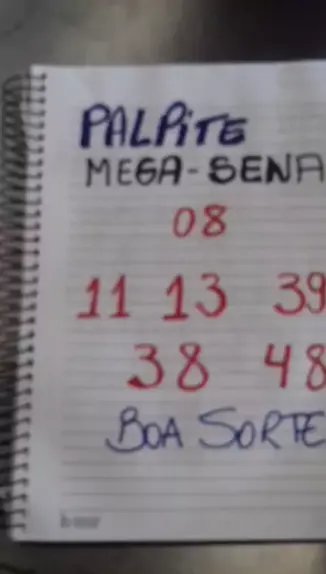 PALPITE
MEGA-SENA
08
11 13 39
38 48
BOA SORTE